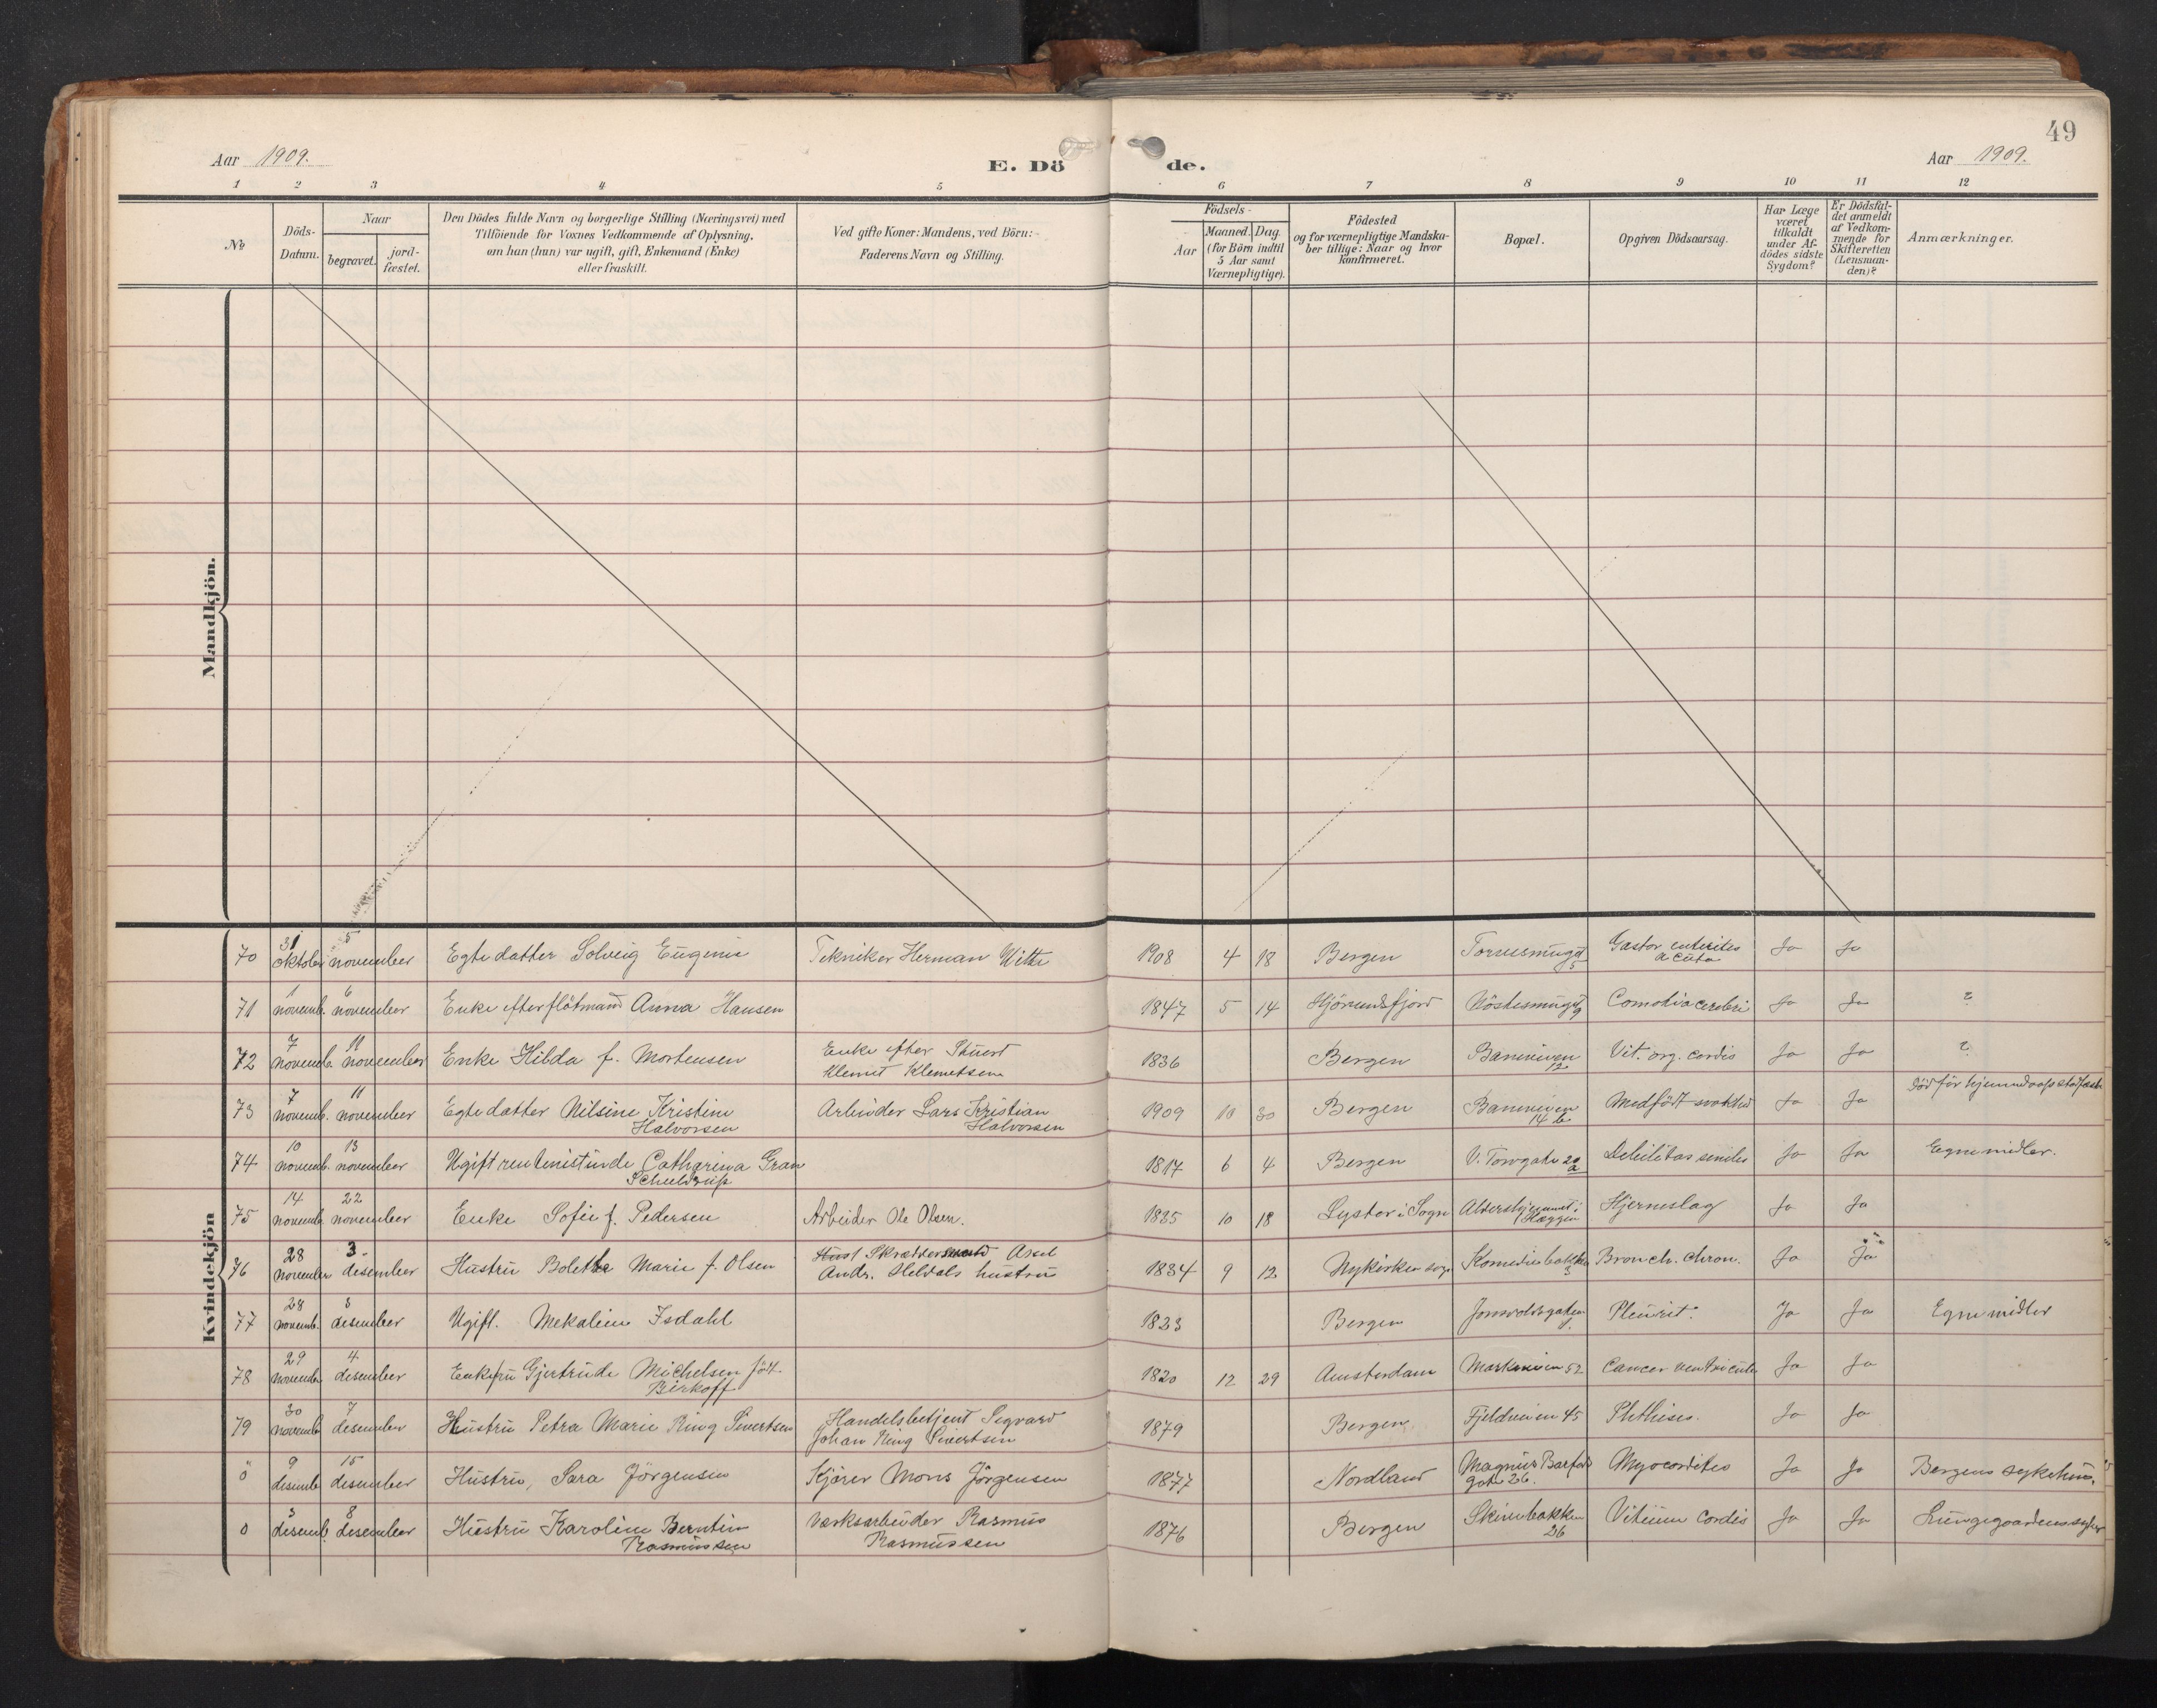 49
Aar 1909.
E. Dö
de.
Aar 1909.
1 2 3 4 5 6 7 8 9 10 11 12
No
Döds-
Datum.
Naar
begravet.
jord-
fæstet.
Den Dödes fulde Navn og borgerlige Stilling (Næringsvei) med
Tilföiende for Voxnes Vedkommende af Oplysning,
om han (hun) var ugift, gift, Enkemand (Enke)
eller fraskilt.
Ved gifte Koner: Mandens, ved Börn:
Faderens Navn og Stilling.
Födsels-
Aar
Maaned. Dag.
(for Börn indtil
5 Aar samt
Værnepligtige).
Födested
og for værnepligtige Mandska-
ber tillige: Naar og hvor
konfirmeret.
Bopæl.
Opgiven Dödsaarsag.
Har Læge
været
tilkaldt
under Af-
dödes sidste
Sygdom?
Er Dödsfal-
det anmeldt
af Vedkom-
mende for
Skifteretten
(Lensman-
den)?
Anmærkninger.
Mandkjön.
Kvindekjön
70 31 oktober 5 november Egtedatter Solveig Eugenie Tekniker Herman Witte 1908 4 18 Bergen 5 Gastor enterites Ja Ja
acuta
71 1 novemb. 6 november Enke efter flötmand Anna Hansen 1847 5 14 Hjörundfjord Nöstesmuget 9 Comotio cerebri Ja Ja ?
72 7 novemb. 11 november Enke Hilda f. Mortensen Enke efter 1836 Bergen 12 Vit. org. cordis Ja Ja ?
Klemet Klemetsen
73 7 novemb. 11 november Egtedatter Nilsine Kristine Arbeider Lars Kristian 1909 10 30 Bergen 14 b Medfödt svakhed Ja Ja Död för hjemmedaap stadfæst.
Halvorsen Halvorsen
74 10 novemb. 13 november Ugift rentenistinde Catharina Gran 1817 6 4 Bergen V. Torvgate 20 a Debilitas senilis Ja Ja Egne midler.
Schieldrup
75 14 novemb. 22 november Enke Sofie f. Pedersen Arbeider Ole Olsen. 1835 10 18 Lyster i Sogn Aldershjemmet i Hjerneslag Ja Ja
Hæggen
76 28 november 3. desember Hustru Bolette Marie f. Olsen Skrædder 1834 9 12 Nykirken sogn Komediebakken 3 Bronch. chron. Ja Ja
Andr. Heldals hustru
77 28 novemb. 3 desember Ugift. Mekaline Isdahl 1823 Bergen 1. Pleurit. Ja Ja Egne midler
78 29 novembr 4. desember Enkefru Gjertrude Michelsen föd. 1820 12 29 Amsterdam Markeveien 52 Cancer ventriculi Ja Ja
Birkoff
79 30 novemb 7 desember Hustru Petra Marie Ring Sivertsen Handelsbetjent Sigvard 1879 Bergen Fjeldveien 45 Phthisis. Ja Ja
Johan Ring Sivertsen
ö 9 desemb 15 desember Hustru, Sara Jörgensen Kjörer Mons Jörgensen 1877 Nordland Magnus Barfods Myocarditis Ja Ja Bergens sykehus.
gate 26.
0 3 desemb. 8 desember Hustru Karoline Berntine Værksarbeider Rasmus 1876 Bergen Skivebakken 26 Vitium cordis Ja Ja Lungegaardens sykeh
Rasmussen Rasmussen